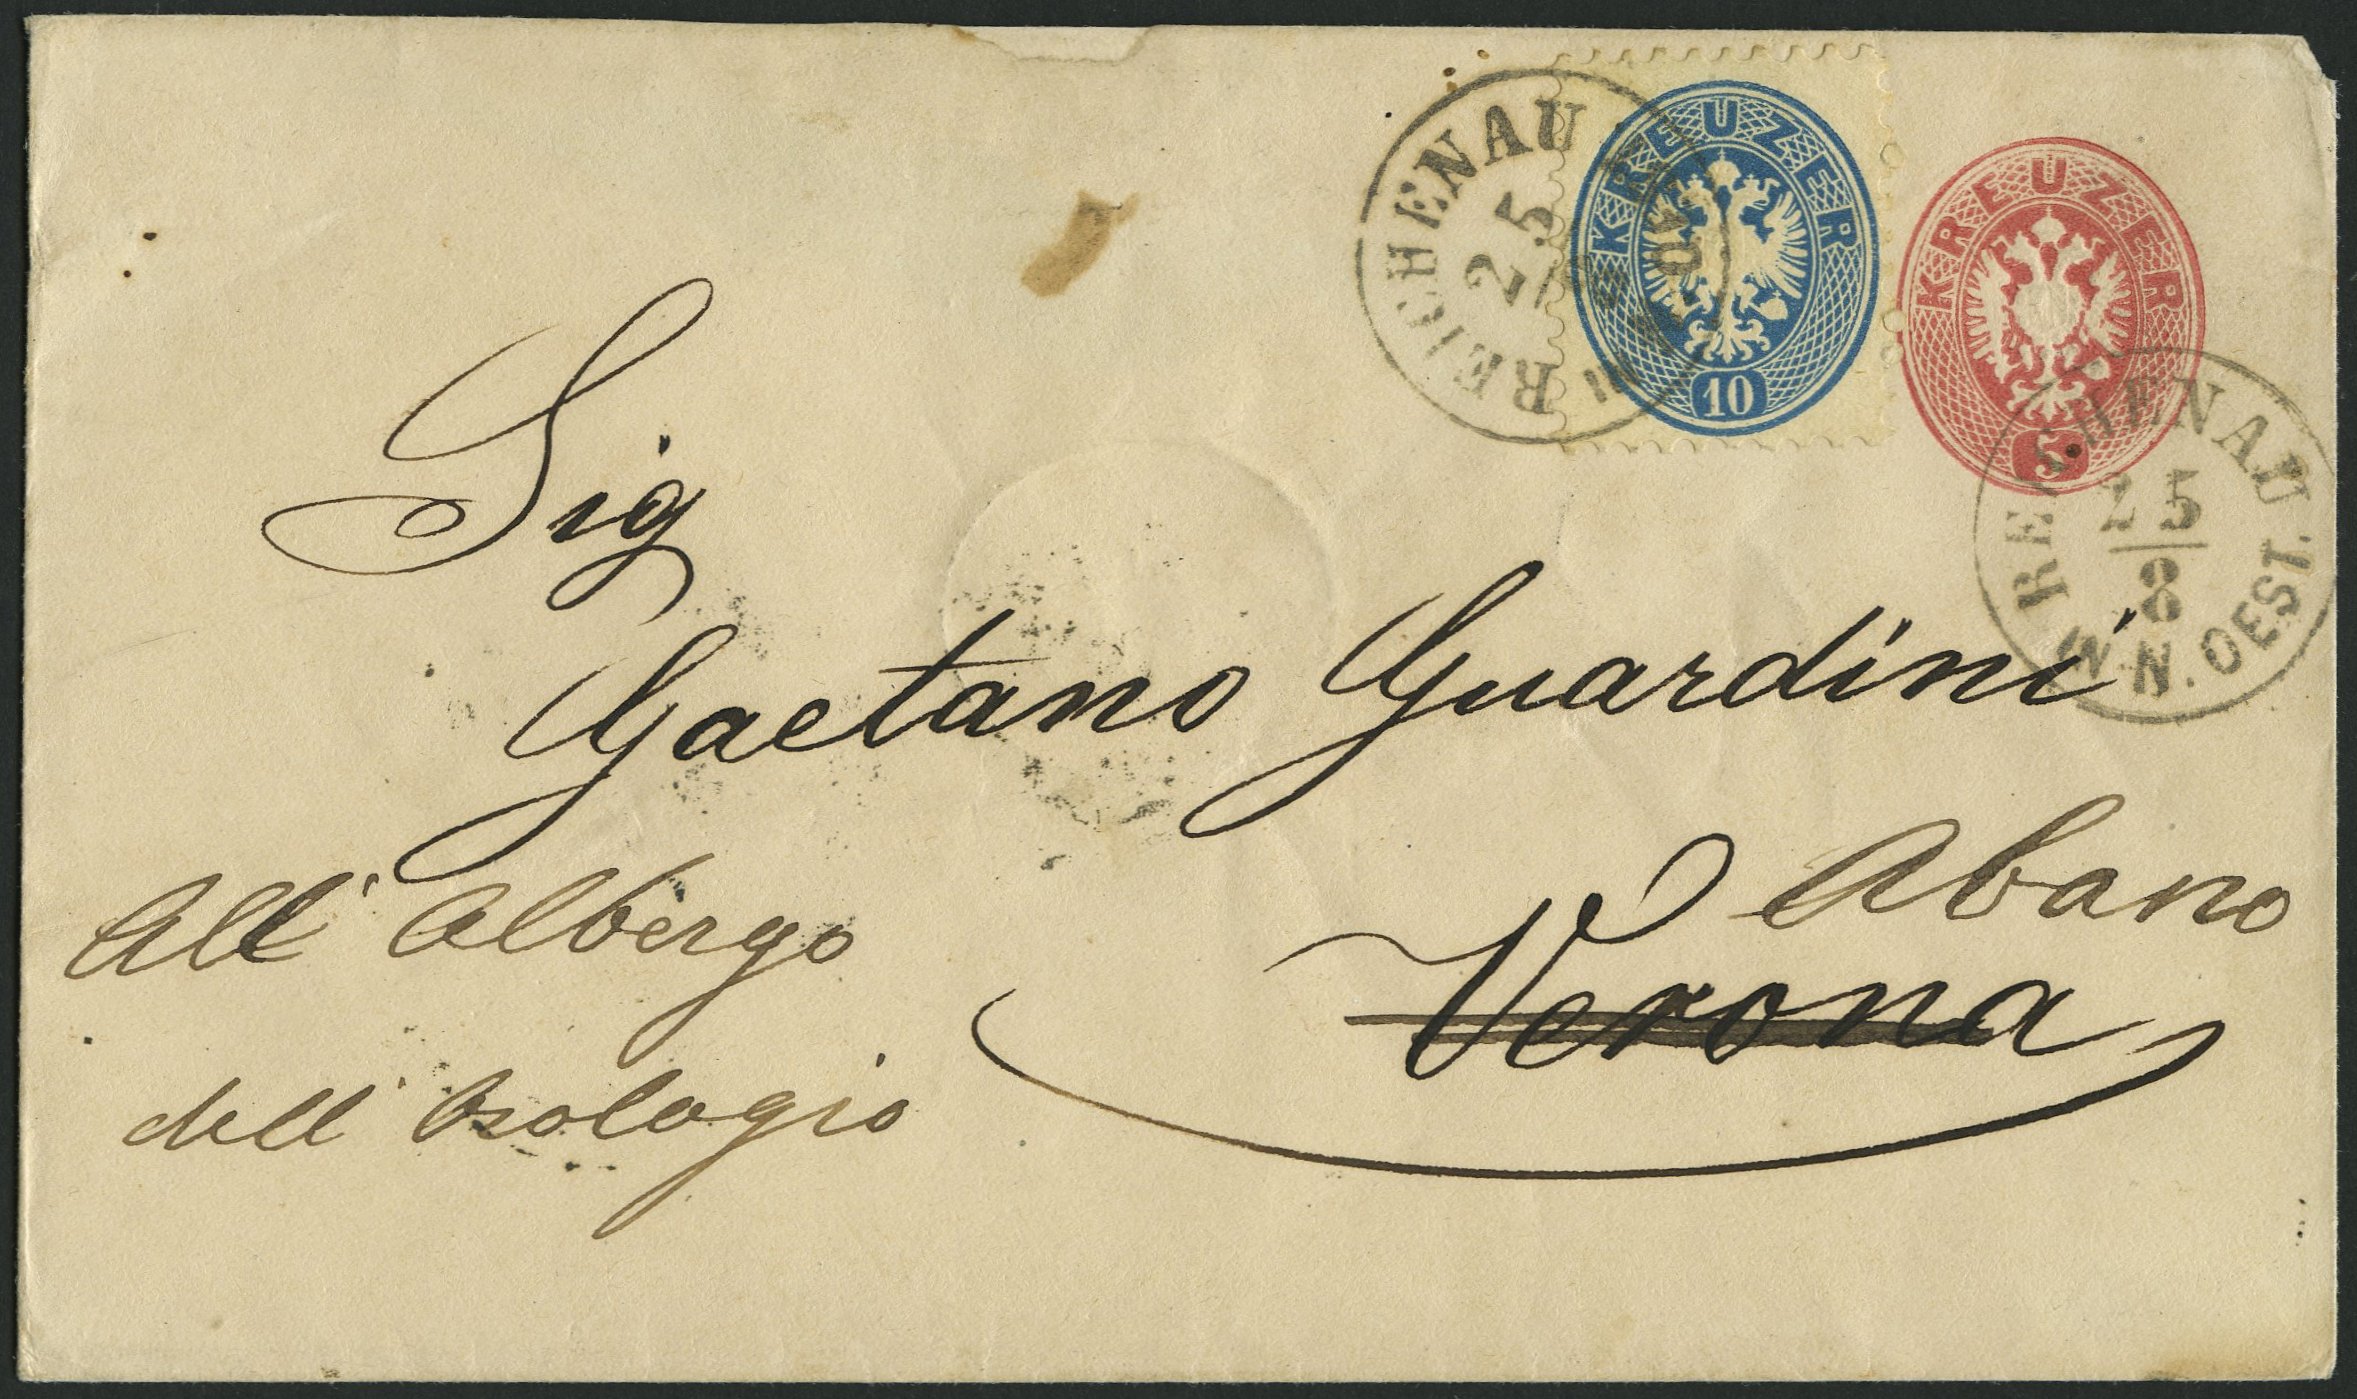 REICHENAU
25
KREUZER
10
KREUZER
5
REICHENAU
25
8
N. OEST.
Sig
Gaetano Guardini
Abano
Verona
All' Albergo
dell' Orologio